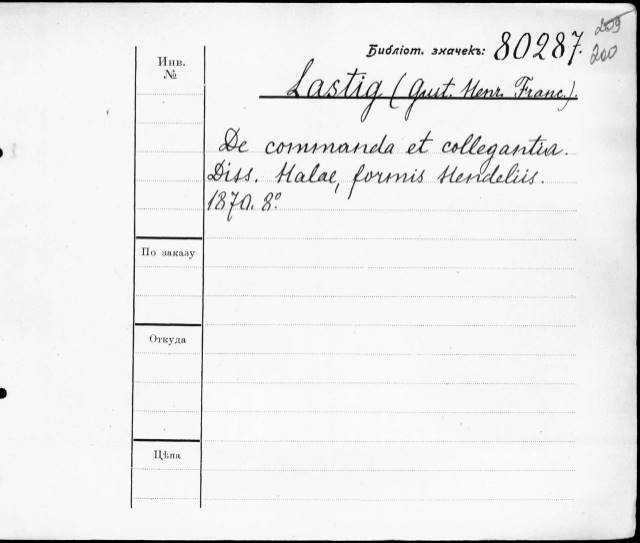 259
Библіот. значекъ: 80287.
200
Инв.
№
Lastig (Gust. Henr. Franc.).
De commanda et collegantia.
Diss. Halae, formis Hendeliis.
1870. 8º
По заказу
Откуда
Цѣна